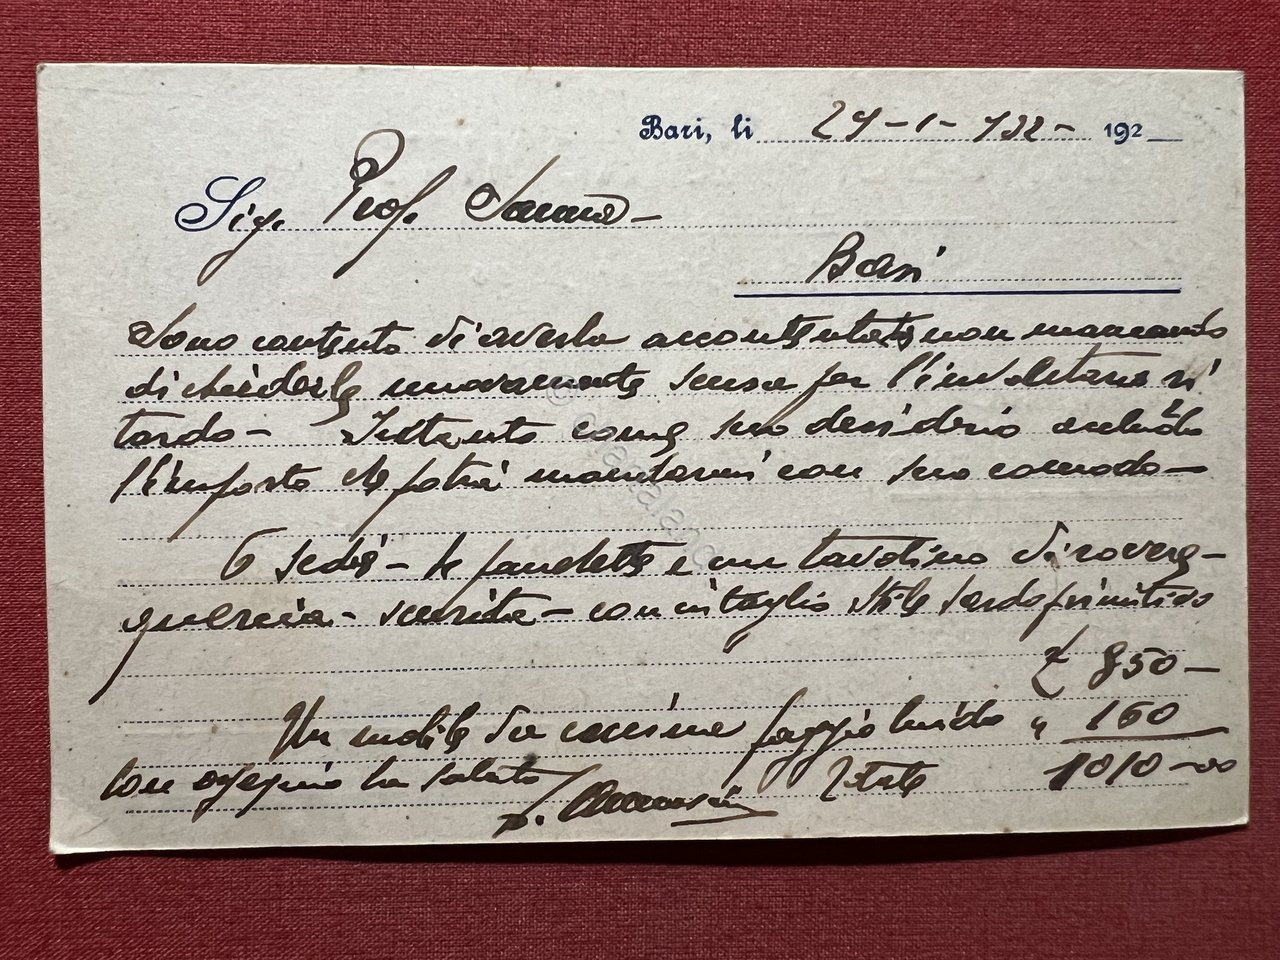 Bari, li 29-1-932- 192
Sig. Prof.
Bari
Sono contento di averla accontentata non mancando
di chiederle nuovamente scusa per l'involontario ri
tardo - Intanto come suo desiderio accludo
l'importo che potrà mandarmi con suo comodo -
6 sedie - e un tavolino di rovere -
quercia - scurita - con intaglio stile sardo primitivo
£ 850 -
Un mobile da cucina faggio lucido " 160
Con ossequio la saluto Totale 1010-00